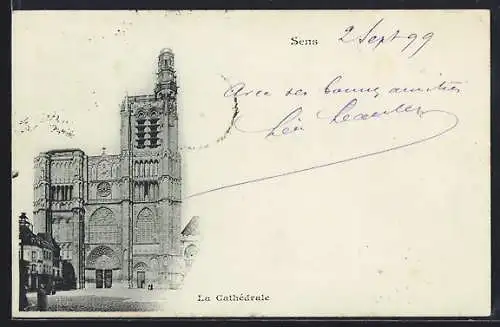 Sens
2 Sept 99
Avec ses bonnes amitiés
Léon
La Cathédrale